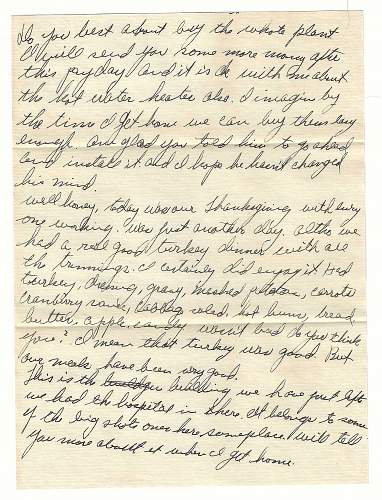 Do you best about buy the whole plant
I will send you some more money after
this payday and it is ok with me about
the hot water heater also. I imagin by
the time I get home we can buy them easy
enough. am glad you told him to go ahead
and install it and I hope he hasn't changed
his mind.
Well honey, today was our Thanksgiving with every
one working. was just another day. altho we
had a real good turkey dinner with all
the trimmings. I certainly did enjoy it. Had
turkey, dressing, gravy, mashed potatoes, carrots
cranberry sauce, cabbag salad, hot buns, bread
butter, apple, candy wasn't bad do you think
you? I mean that turkey was good. But
our meals have been very good.
This is the building we have just left
we had the hospital in there. It belongs to some
of the big shots over here someplace. will tell
you more about it when I get home.